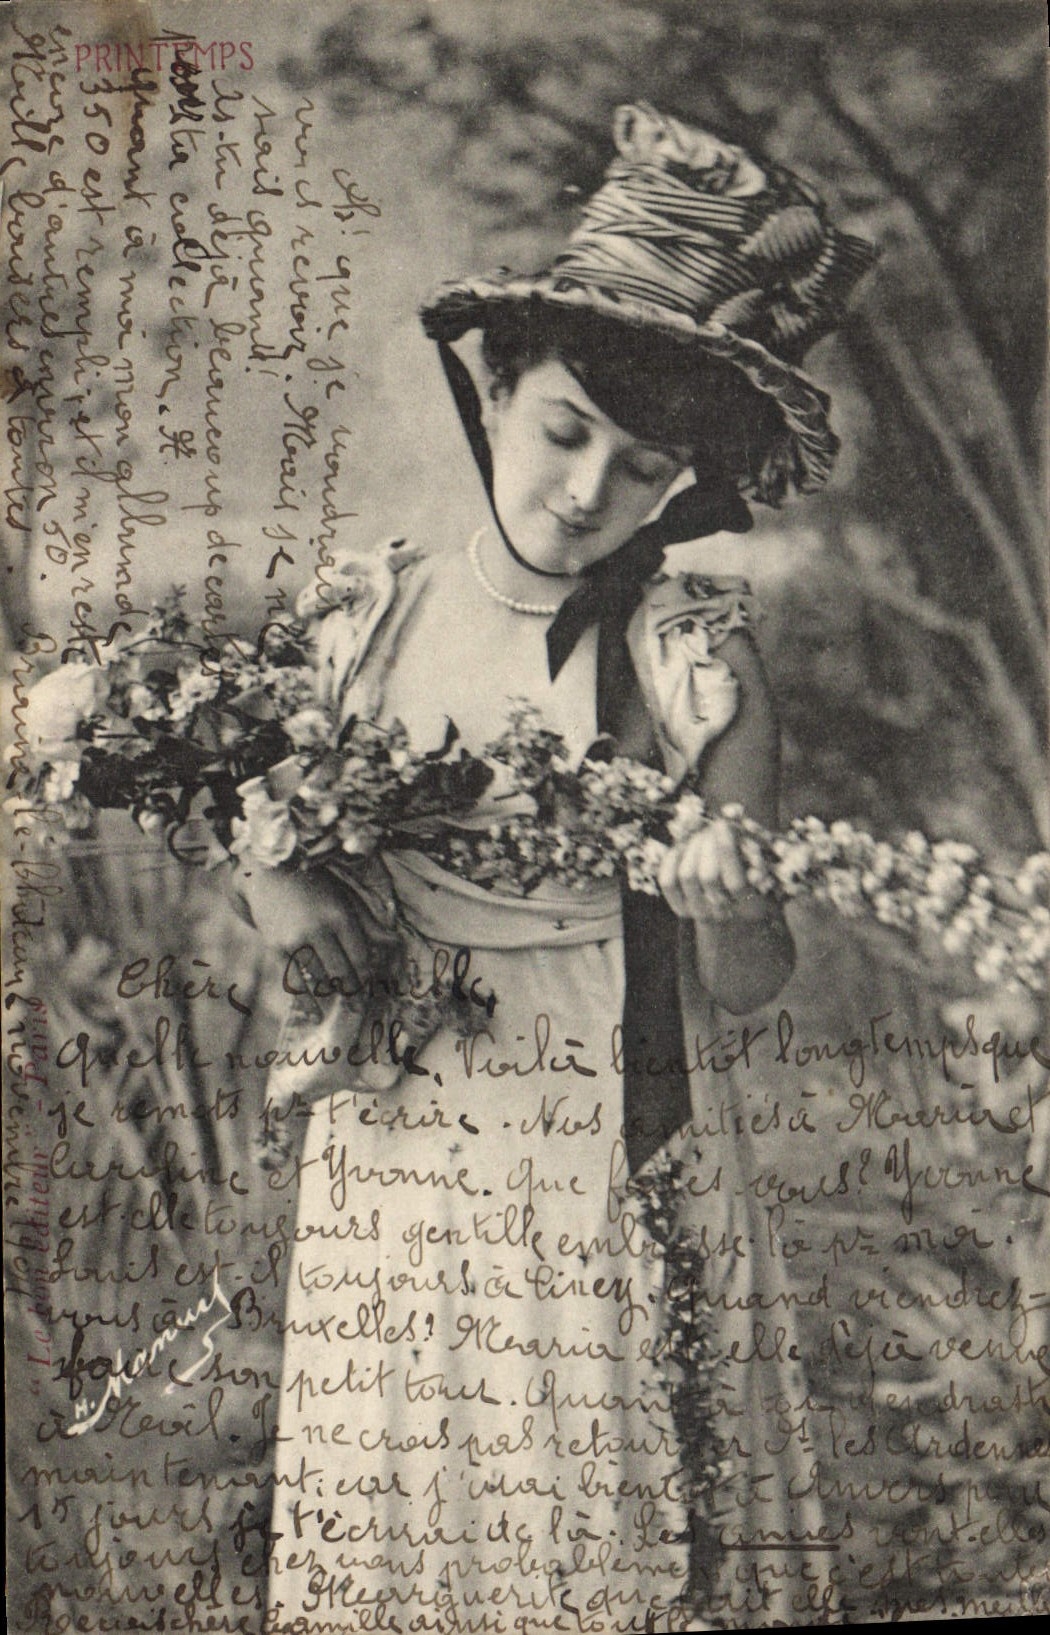 PRINTEMPS
Chère Camille,
Quelle nouvelle. Voilà bientôt longtemps que
je remets pr t'écrire. Nos amitiés à Maria et
Caroline et Yvonne. Que faites-vous? Yvonne
est-elle toujours gentille embrasse-là pr moi.
Louis est-il toujours à Ciney. Quand viendrez-
vous à Bruxelles? Maria est-elle déjà venue
faire son petit tour. Quant à toi viendras-tu
à Noël. Je ne crois pas retourner ds les Ardennes
maintenant; car j'irai bientôt à Anvers pour
15 jours je t'écrirai de là. Les amies vont-elles
toujours chez vous probablement que c'est toutes
nouvelles. Marguerite que fait elle mes meilleurs
chère Camille ainsi que tout le
Ah! que je voudrais
vous revoir. Mais je ne
sais quand!
As-tu déjà beaucoup de cartes
ta collection.
Quant à moi mon album de
350 est rempli; et il m'en reste
encore d'autres environ 50.
Mille baisers à toutes.
Braine-le-Château novembre
H. Manuel